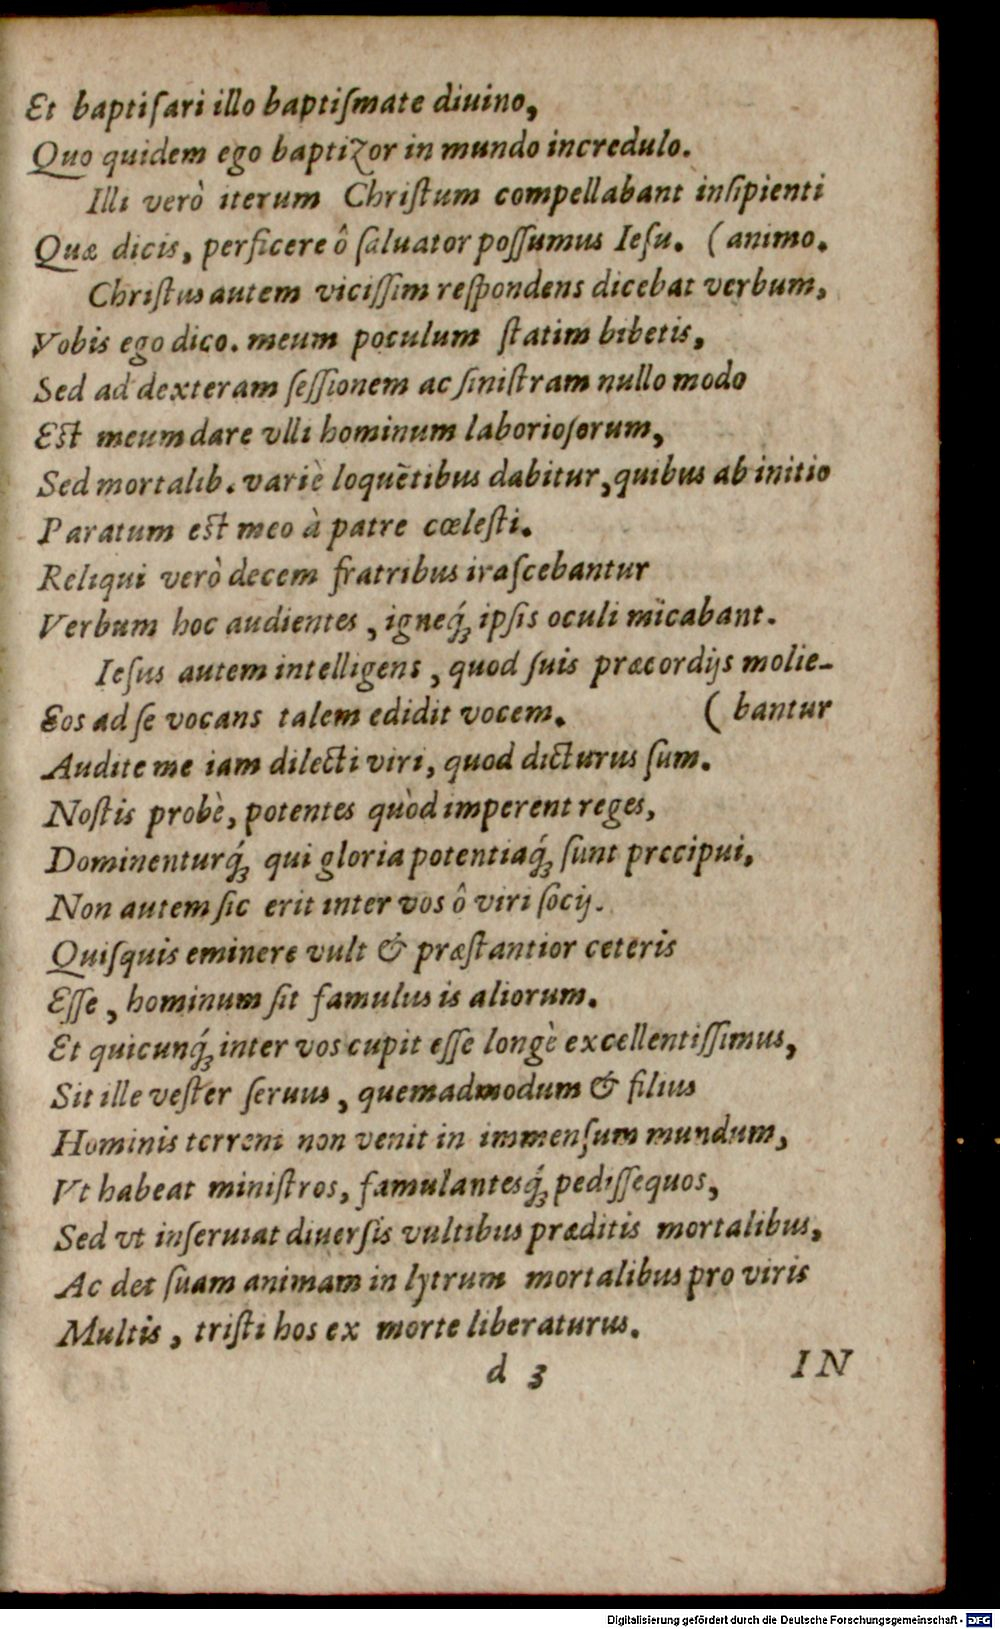 Et baptiſari illo baptiſmate diuino,
Quo quidem ego baptizor in mundo incredulo.
Illi verò iterum Chriſtum compellabant inſipienti
Quæ dicis, perficere ô ſaluator poſſumus Ieſu. (animo.
Chriſtus autem viciſſim reſpondens dicebat verbum,
Vobis ego dico. meum poculum ſtatim bibetis,
Sed ad dexteram ſeſſionem ac ſiniſtram nullo modo
Eſt meum dare vlli hominum laborioſorum,
Sed mortalib. variè loquẽtibus dabitur, quibus ab initio
Paratum eſt meo à patre cœleſti.
Reliqui verò decem fratribus iraſcebantur
Verbum hoc audientes, igneq́; ipſis oculi micabant.
Ieſus autem intelligens, quod ſuis præcordijs molie-
Eos ad ſe vocans talem edidit vocem. (bantur
Audite me iam dilecti viri, quod dicturus ſum.
Noſtis probè, potentes quòd imperent reges,
Dominenturq́; qui gloria potentiaq́; ſunt precipui,
Non autem ſic erit inter vos ô viri ſocij.
Quiſquis eminere vult & præſtantior ceteris
Eſſe, hominum ſit famulus is aliorum.
Et quicunq́; inter vos cupit eſſe longè excellentiſſimus,
Sit ille veſter ſeruus, quemadmodum & filius
Hominis terreni non venit in immenſum mundum,
Vt habeat miniſtros, famulantesq́; pediſſequos,
Sed vt inſeruiat diuerſis vultibus præditis mortalibus,
Ac det ſuam animam in lytrum mortalibus pro viris
Multis, triſti hos ex morte liberaturus.
d 3 IN
Digitalisierung gefördert durch die Deutsche Forschungsgemeinschaft - DFG